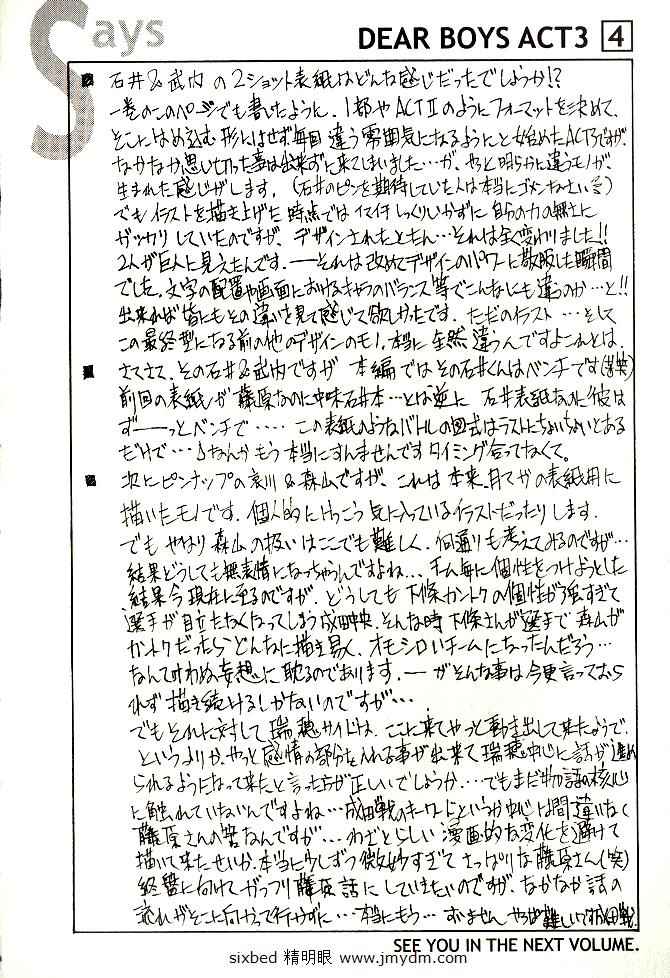 Says
DEAR BOYS ACT3 4
石井&武内の2ショット表紙はどんな感じだったでしょうか!?
一巻のこのページでも書いたように、1部やACTⅡのようにフォーマットを決めて、
そこにはめ込む形にはせず毎回違う雰囲気になるようにと始めたACT3ですが、
なかなか思い切った事は出来ずに来てしまいました…が、やっと明らかに違うモノが、
生まれた感じがします。(石井のピンを期待していた人は本当にゴメンなさい)
でもイラストを描き上げた時点ではイマイチしっくりいかずに自分の力の無さに
ガッカリしていたのですが、デザインされたとたん…それは全く変わりました!!
2人が巨人に見えたんです。――それは改めてデザインのパワーに敬服した瞬間
でした。文字の配置や画面におけるキャラのバランス等でこんなにも違うのか…と!!
出来れば皆にもその違いを見て感じて欲しかったです。ただのイラスト…そして
この最終型になる前の他のデザインのモノ、本当に全然違うんですよこれとは。
さてさて、その石井&武内ですが本編ではその石井くんはベンチです(苦笑)
前回の表紙が藤原なのに中味石井本…とは逆に石井表紙なのに彼は
ず――っとベンチで‥‥この表紙のようなバトルの図式はラストにちょいちょいとある
だけで…なんかもう本当にすんませんですタイミング合ってなくて。
次にピンナップの哀川&森山ですが、これは本来、月マガの表紙用に
描いたモノです。個人的にけっこう気に入っているイラストだったりします。
でもやはり森山の扱いはここでも難しく、何通りも考えてみるのですが…
結果どうしても無表情になっちゃうんですよね…チーム毎に個性をつけようとした
結果今現在に至るのですが、どうしても下條カントクの個性が強すぎて
選手が目立たなくなってしまう成田中央、そんな時下條さんが選手で森山が
カントクだったらどんなに描き易く、オモシロいチームになったんだろう…
なんて叶わぬ妄想に耽るのであります。――がそんな事は今更言っておら
れず描き続けるしかないのですが…
でもそれに対して瑞穂サイドは、ここに来てやっと動き出して来たようで、
というよりか、やっと感情の部分を入れる事が出来て瑞穂中心に話が進め
られるようになって来たと言った方が正しいでしょうか…でもまだ物語の核心
に触れていないんですよね…成田戦のキーワードというか中心は間違いなく
藤原さんの筈なんですが…わざとらしい漫画的な変化を避けて
描いて来たせいか、本当に少しずつ微妙すぎてさっぱりな藤原さん(笑)
終盤に向けて、がっつり藤原話にしていきたいのですが、なかなか話の
流れがそこに向かって行かずに…本当にもう…すいませんやっぱ難しいです成田戦。
SEE YOU IN THE NEXT VOLUME.
sixbed 精明眼 www.jmydm.com